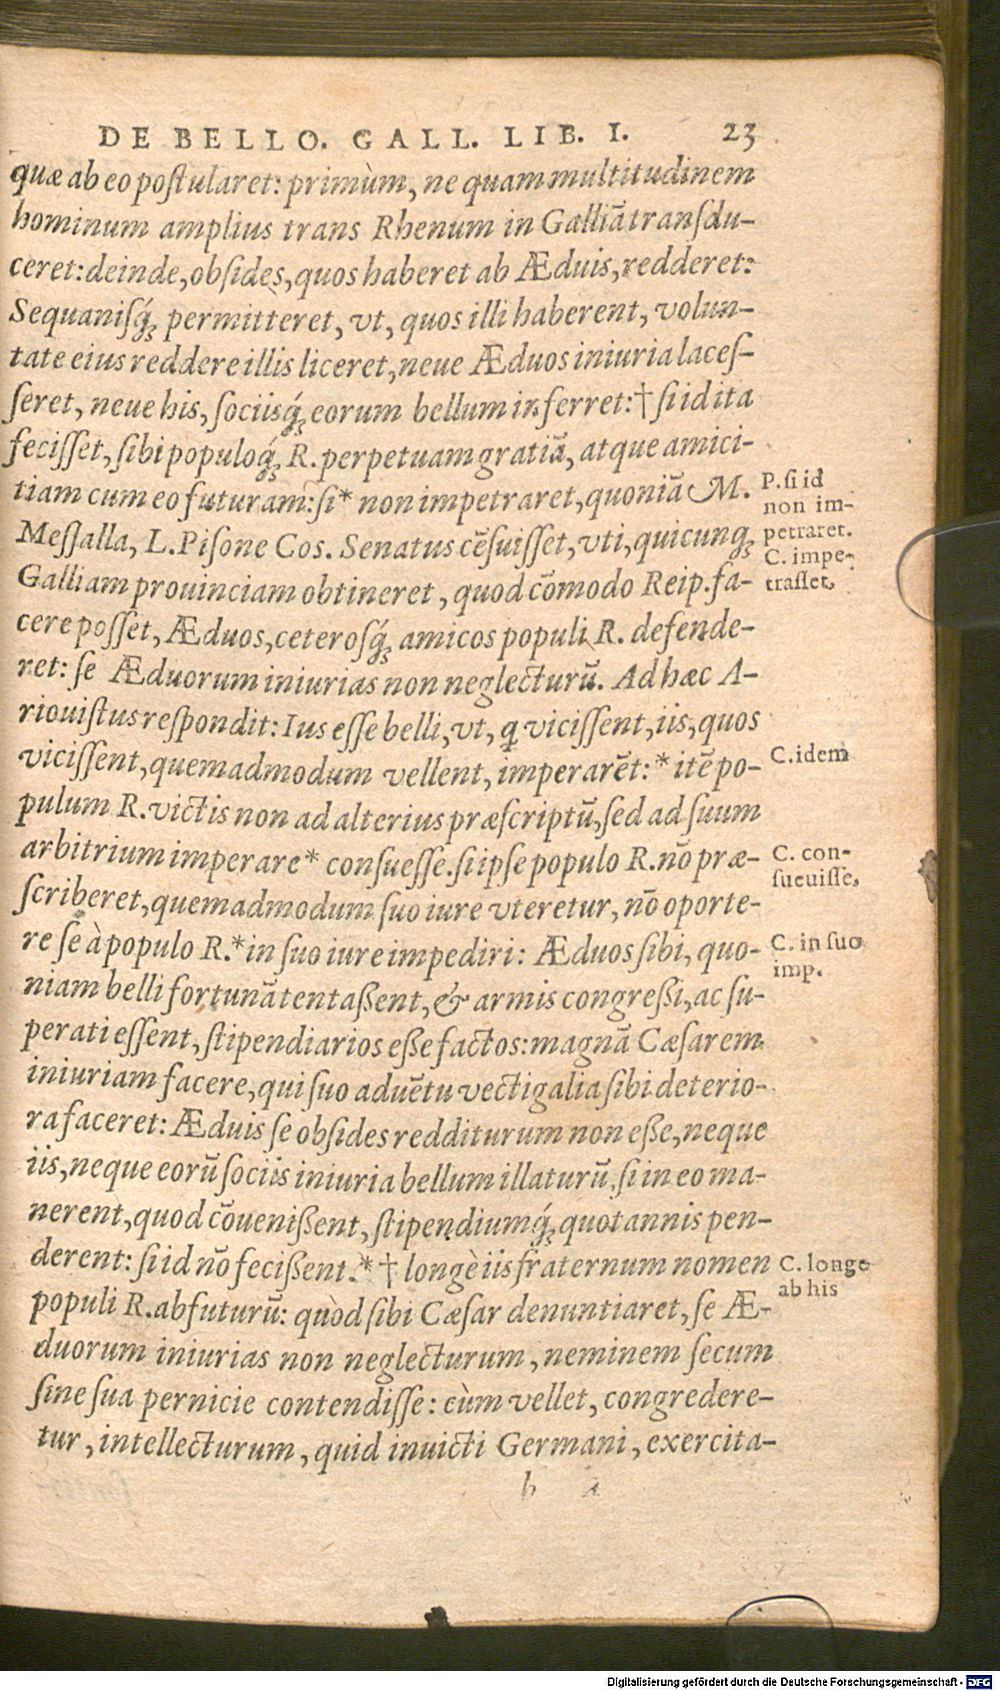 DE BELLO. GALL. LIB. I. 23
quæ ab eo postularet: primùm, ne quam multitudinem
hominum amplius trans Rhenum in Galliā transdu-
ceret: deinde, obsides, quos haberet ab Æduis, redderet:
Sequanisq́; permitteret, vt, quos illi haberent, volun-
tate eius reddere illis liceret, neue Æduos iniuria laces-
seret, neue his, sociisq́; eorum bellum inferret: † si id ita
fecisset, sibi populoq́; R. perpetuam gratiā, atque amici-
tiam cum eo futuram: si* non impetraret, quoniā M.
Messalla, L. Pisone Cos. Senatus cēsuisset, vti, quicunq;
Galliam prouinciam obtineret, quod cōmodo Reip. fa-
cere posset, Æduos, ceterosq́; amicos populi R. defende-
ret: se Æduorum iniurias non neglecturū. Ad hæc A-
riouistus respondit: Ius esse belli, vt, q̨ vicissent, iis, quos
vicissent, quemadmodum vellent, imperarēt: * itē po-
pulum R. victis non ad alterius præscriptū, sed ad suum
arbitrium imperare* consuesse. si ipse populo R. nō præ-
scriberet, quemadmodum suo iure vteretur, nō oporte-
re se à populo R.* in suo iure impediri: Æduos sibi, quo-
niam belli fortunā tentaßent, & armis congreßi, ac su-
perati essent, stipendiarios eße factos: magnā Cæsarem
iniuriam facere, qui suo aduētu vectigalia sibi deterio-
ra faceret: Æduis se obsides redditurum non eße, neque
iis, neque eorū sociis iniuria bellum illaturū, si in eo ma-
nerent, quod cōuenißent, stipendiumq́; quotannis pen-
derent: si id nō fecißent. * † longè iis fraternum nomen
populi R. abfuturū: quòd sibi Cæsar denuntiaret, se Æ-
duorum iniurias non neglecturum, neminem secum
sine sua pernicie contendisse: cùm vellet, congredere-
tur, intellecturum, quid inuicti Germani, exercita-
b
P. si id
non im-
petraret.
C. impe-
trasset.
C. idem
C. con-
sueuisse.
C. in suo
imp.
C. longe
ab his
Digitalisierung gefördert durch die Deutsche Forschungsgemeinschaft - DFG